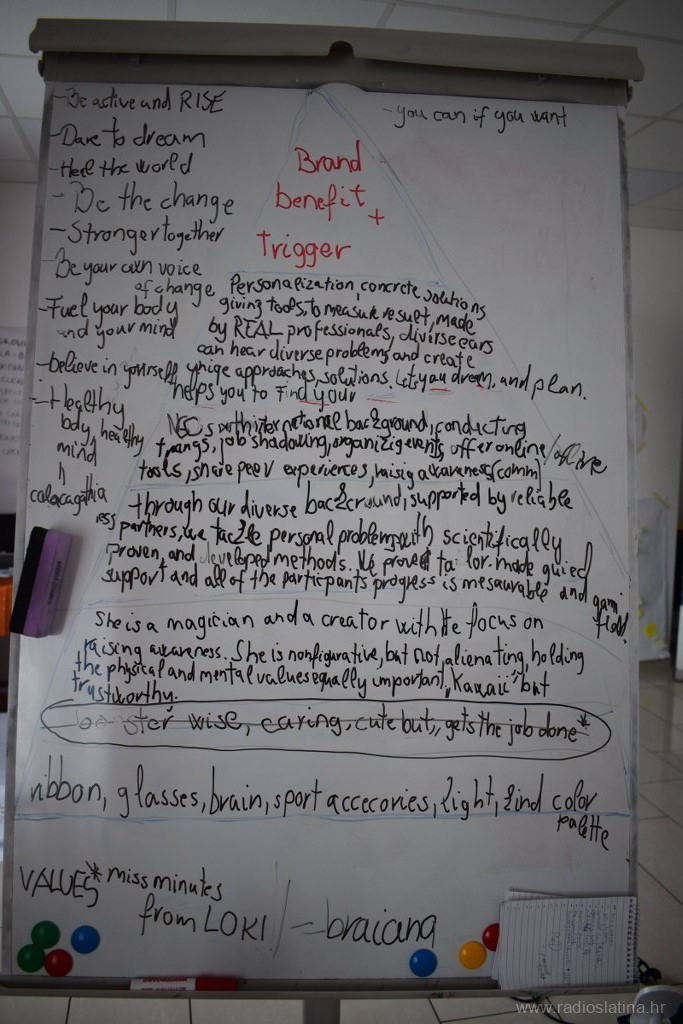 -Be active and RISE
-Dare to dream
-Heel the world
-Be the change
-Stronger together
-Be your own voice
of change
-Fuel your body
and your mind
-believe in yourself
-Healthy
body, healthy
mind
calocagathia
-you can if you want
Brand
benefit +
Trigger
Personalization, concrete solutions
giving tools, to measure result, made
by REAL professionals, diverse ears
can hear diverse problems, and create
approaches, solutions. Lets you dream, and plan.
helps you to Find your
international background, conducting
job shadowing, organizig events, offer online/offline
tools, share peer experiences, raisig awareness (comm)
through our diverse background, supported by reliable
partners, we tackle personal problems with scientifically
proven, and developed methods. We proved tailor-made guied
support and all of the participants progress is mesaurable and gami
fied.
She is a magician and a creator with the focus on
raising awareness. She is nonfigurative, but not, alienating, holding
the physical and mental values equally important, "Kawaii" but
trustworthy.
wise, caring, cute but, gets the job done*
ribbon, glasses, brain, sport accecories, light, kind color
palette
VALUES
*miss minutes
from LOKI / -braiana
www.radioslatina.hr